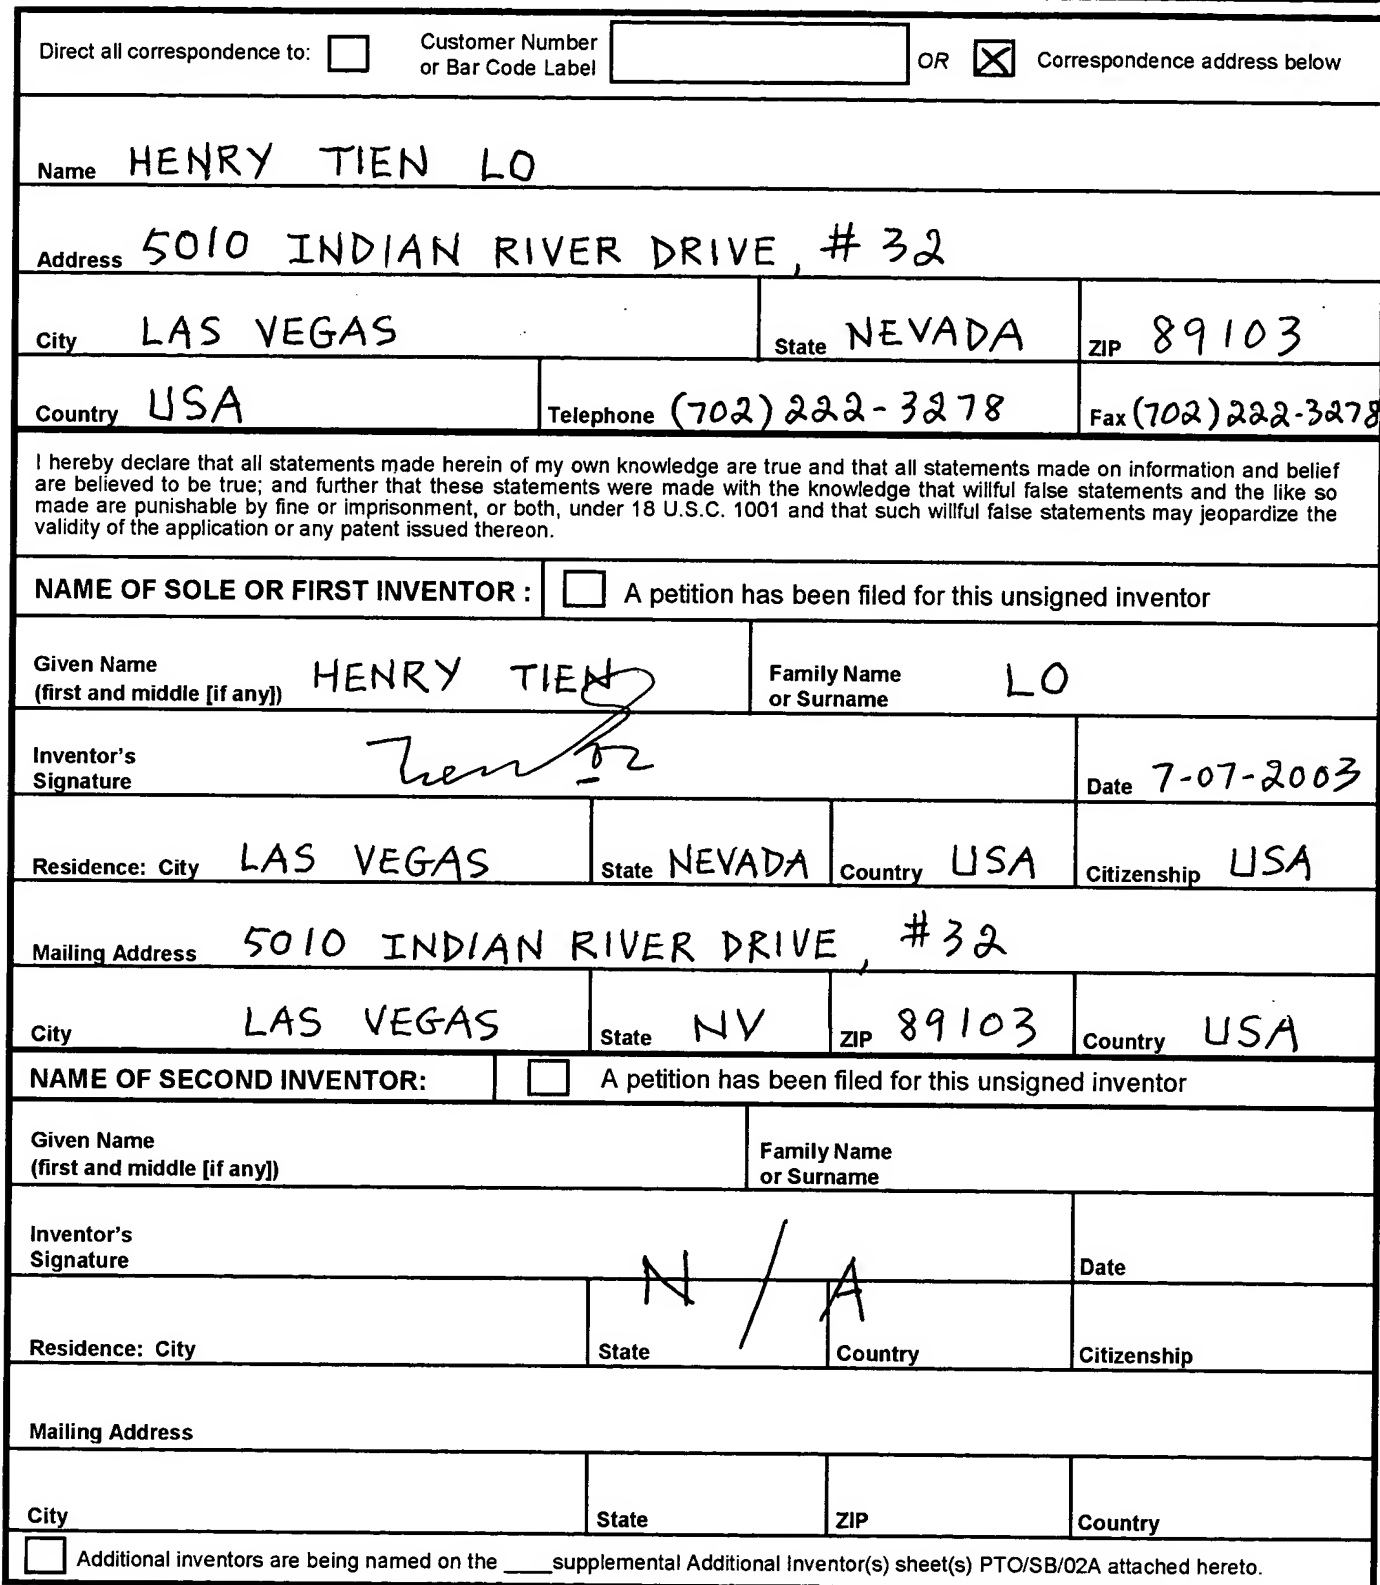 Direct all correspondence to: Customer Number or Bar Code Label OR Correspondence address below
Name HENRY TIEN LO
Address 5010 INDIAN RIVER DRIVE, #32
City LAS VEGAS State NEVADA ZIP 89103
Country USA Telephone (702) 222-3278 Fax (702) 222-3278
I hereby declare that all statements made herein of my own knowledge are true and that all statements made on information and belief
are believed to be true; and further that these statements were made with the knowledge that willful false statements and the like so
made are punishable by fine or imprisonment, or both, under 18 U.S.C. 1001 and that such willful false statements may jeopardize the
validity of the application or any patent issued thereon.
NAME OF SOLE OR FIRST INVENTOR : A petition has been filed for this unsigned inventor
Given Name (first and middle [if any]) HENRY TIEN Family Name or Surname LO
Inventor's Signature Date 7-07-2003
Residence: City LAS VEGAS State NEVADA Country USA Citizenship USA
Mailing Address 5010 INDIAN RIVER DRIVE, #32
City LAS VEGAS State NV ZIP 89103 Country USA
NAME OF SECOND INVENTOR: A petition has been filed for this unsigned inventor
Given Name (first and middle [if any]) Family Name or Surname
Inventor's Signature N/A Date
Residence: City State Country Citizenship
Mailing Address
City State ZIP Country
Additional inventors are being named on the ____supplemental Additional Inventor(s) sheet(s) PTO/SB/02A attached hereto.